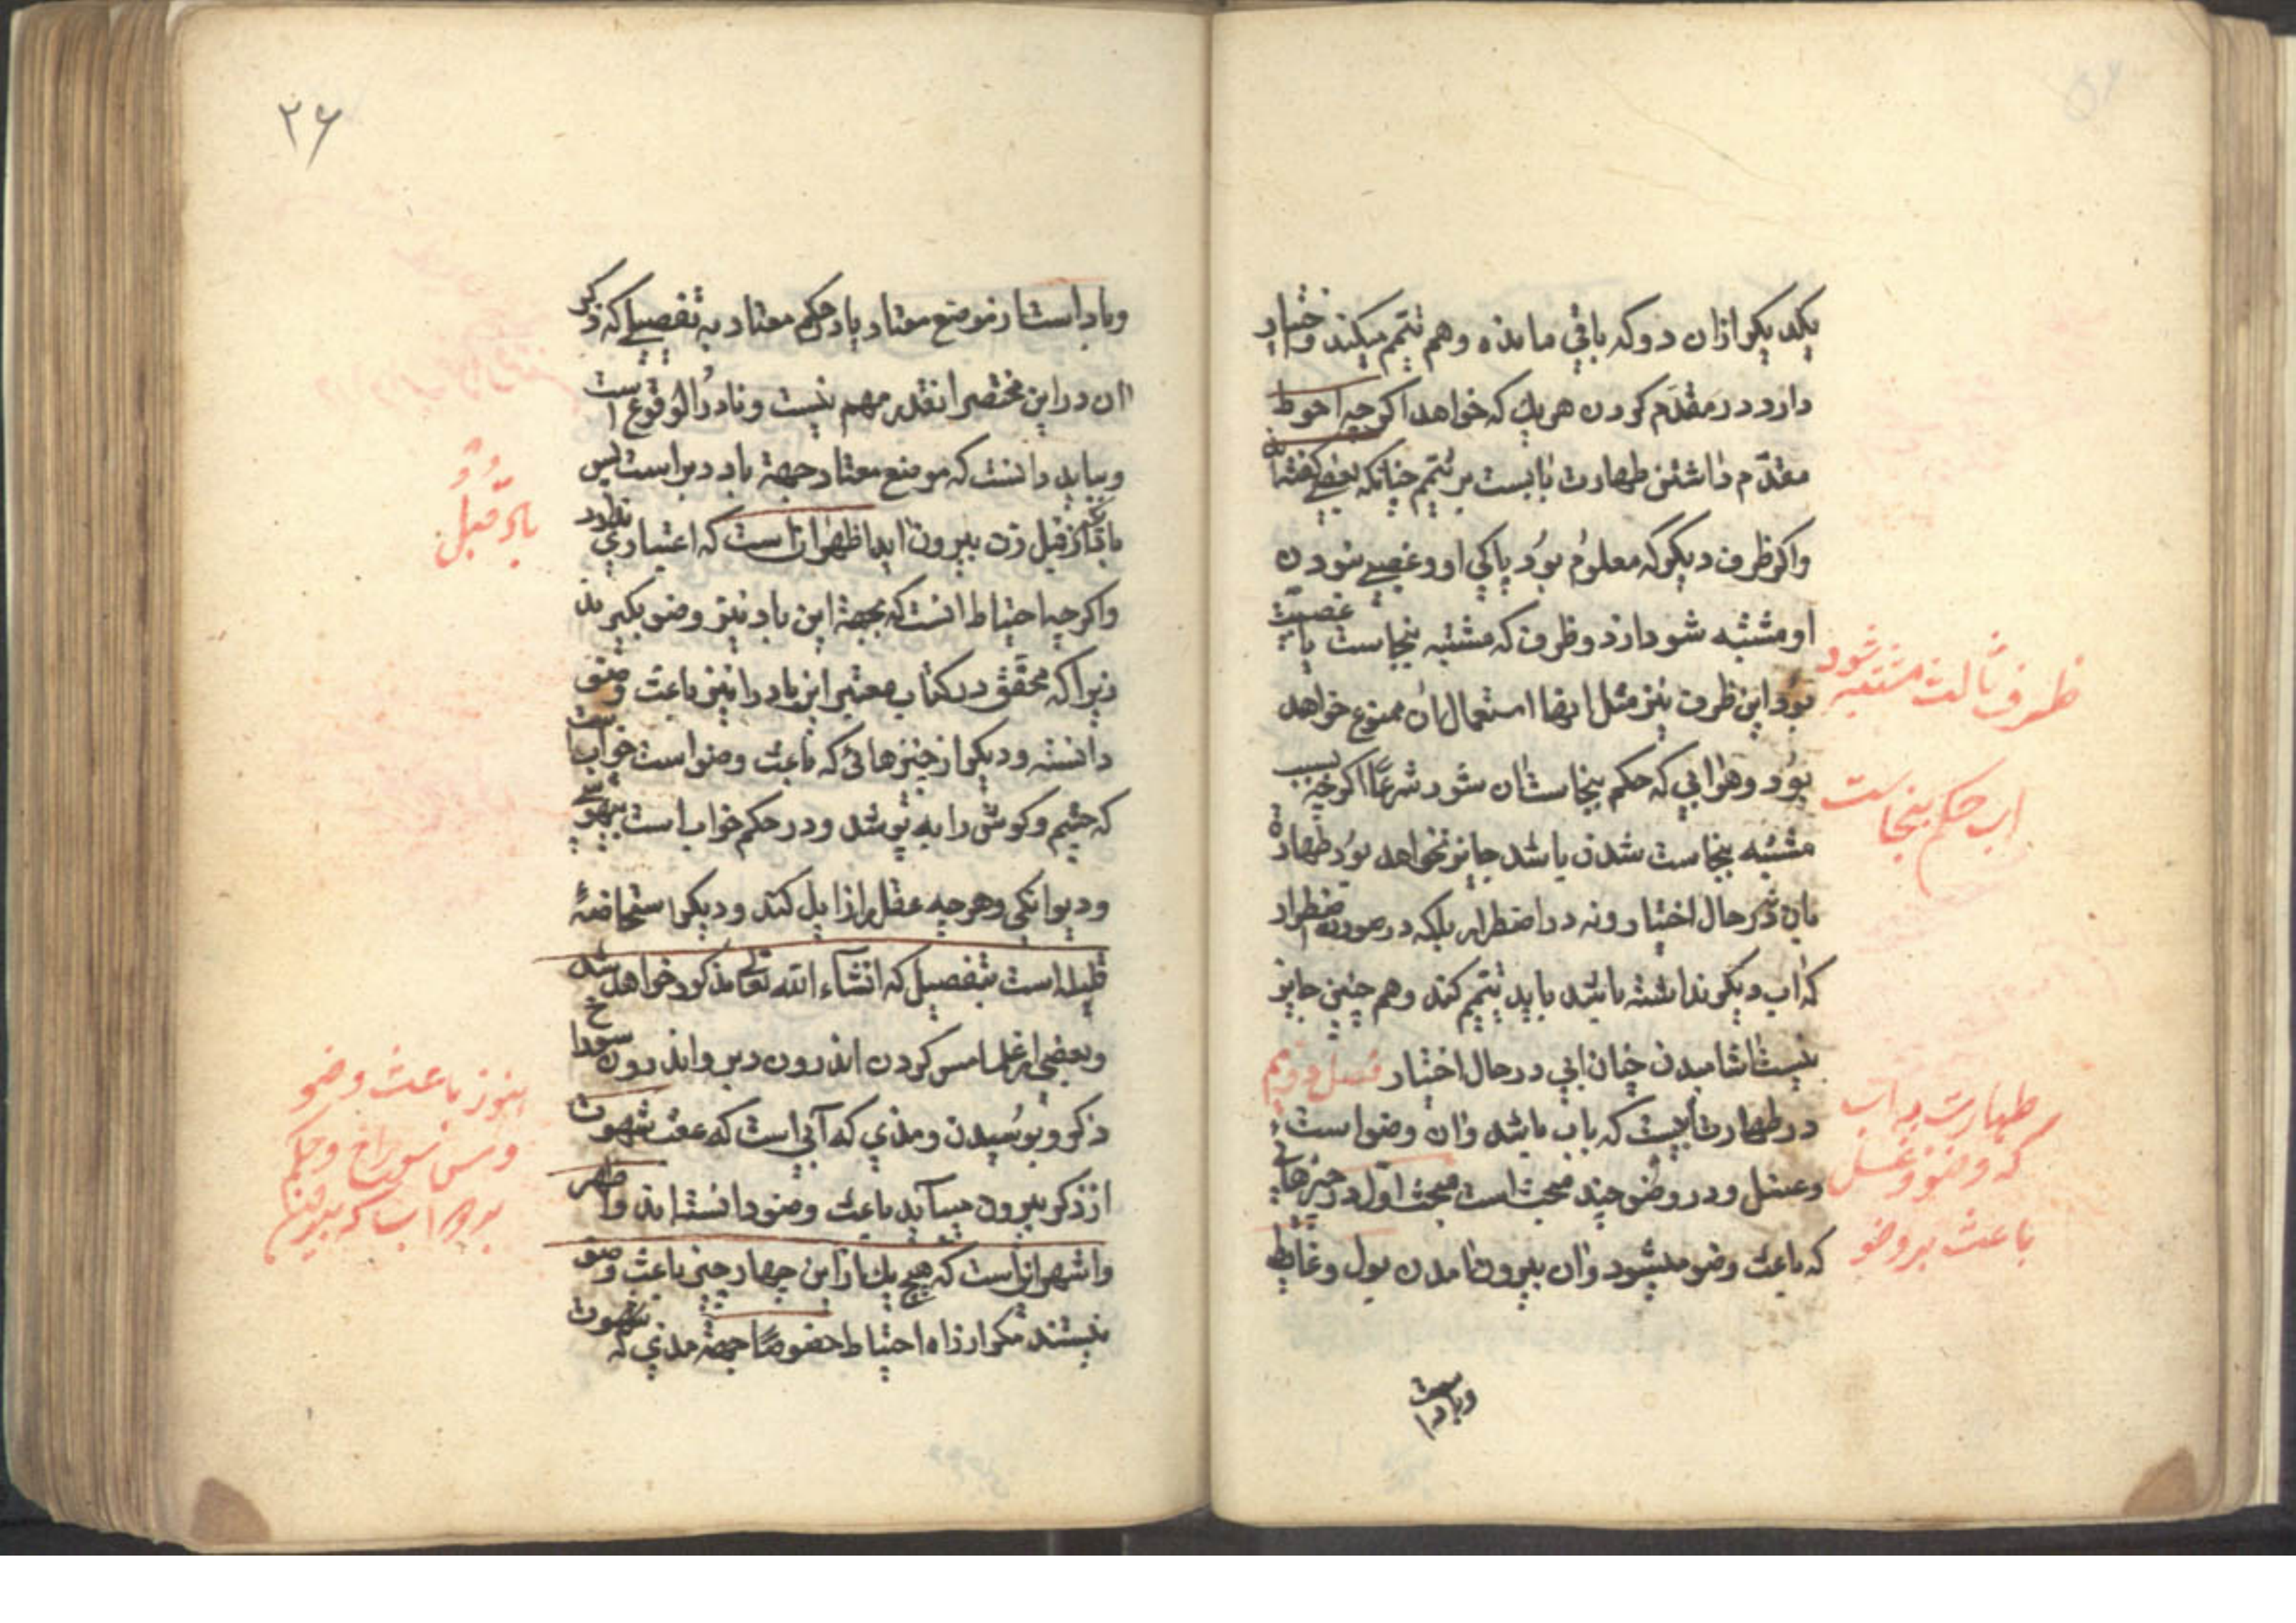 بکند بیکی ازان دو که باقی مانده و هم تیمم میکند و اختیار
دارد در مقدّم کردن هریك که خواهد اکرچه احوط
مقدّم داشتن طهارت بابست بر تیمم چنانکه بعضی کفته‌اند
واکر ظرف دیکر که معلوم بود پاکی او و غصبی نبودن
او مشتبه شود ازد و ظرف که مشتبه بنجاست یا غصبیّت
بود و این ظرف نیز مثل انها استعمال ان ممنوع خواهد
بود و هرابی که حکم بنجاست ان شود شرعًا اکرچه بسبب
مشتبه بنجاست شدن باشد جایز نخواهد بود طهارة
بان نه در حال اختیار و نه در اضطرار بلکه در صورت اضطرار
که اب دیکر نداشته باشد باید تیمم کند و هم چنین جایز
نیست اشامیدن چنان ابی در حال اختیار فصل دویم
در طهارتیست که باب باشد وان وضو است
وغسل و در وضو چند مبحث است مبحث اوّل در چیزهائی
که باعث وضو میشود وان بیرون امدن بول و غایط
وباد است
ظرف ثالث مشتبه شود
اب حکم بنجاست
طهارت به اب
که وضو و غسل
باعث بر وضو
۳۶
وباد است از موضع معتاد یا در حکم معتاد به تفصیلی که ذکر
ان در این مختصر انقدر مهم نیست و نادرُ الوقوع است
و بباید دانست که موضع معتاد جهة باد دبر است پس
بادی که از قبل زن بیرون اید اظهر انست که اعتباری ندارد
واکرچه احتیاط انست که بجهة این باد نیز وضو بکیرند
زیرا که محقق در کتاب معتبر این باد را نیز باعث وضو
دانسته و دیکر از چیزهائی که باعث وضو است خواب است
که چشم و کوش را به پوشد و در حکم خواب است بیهوشی
و دیوانکی و هرچه عقل را زایل کند و دیکر استحاضهٔ
قلیله است بتفصیل که انشاء الله تعالی مذکور خواهد شد
و بعضی از علما مس کردن اندرون دبر و اندرون سوراخ
ذکر و بوسیدن و مذی که آبی است که عقب شهوت
از ذکر بیرون میآید باعث وضو دانسته اند و اظهر
واشهر انست که هیچ یك از این چهار چیز باعث وضو
نیستند مکر از راه احتیاط خصوصًا جهة مذی که بشهوت
باد قبل
باعث وضو